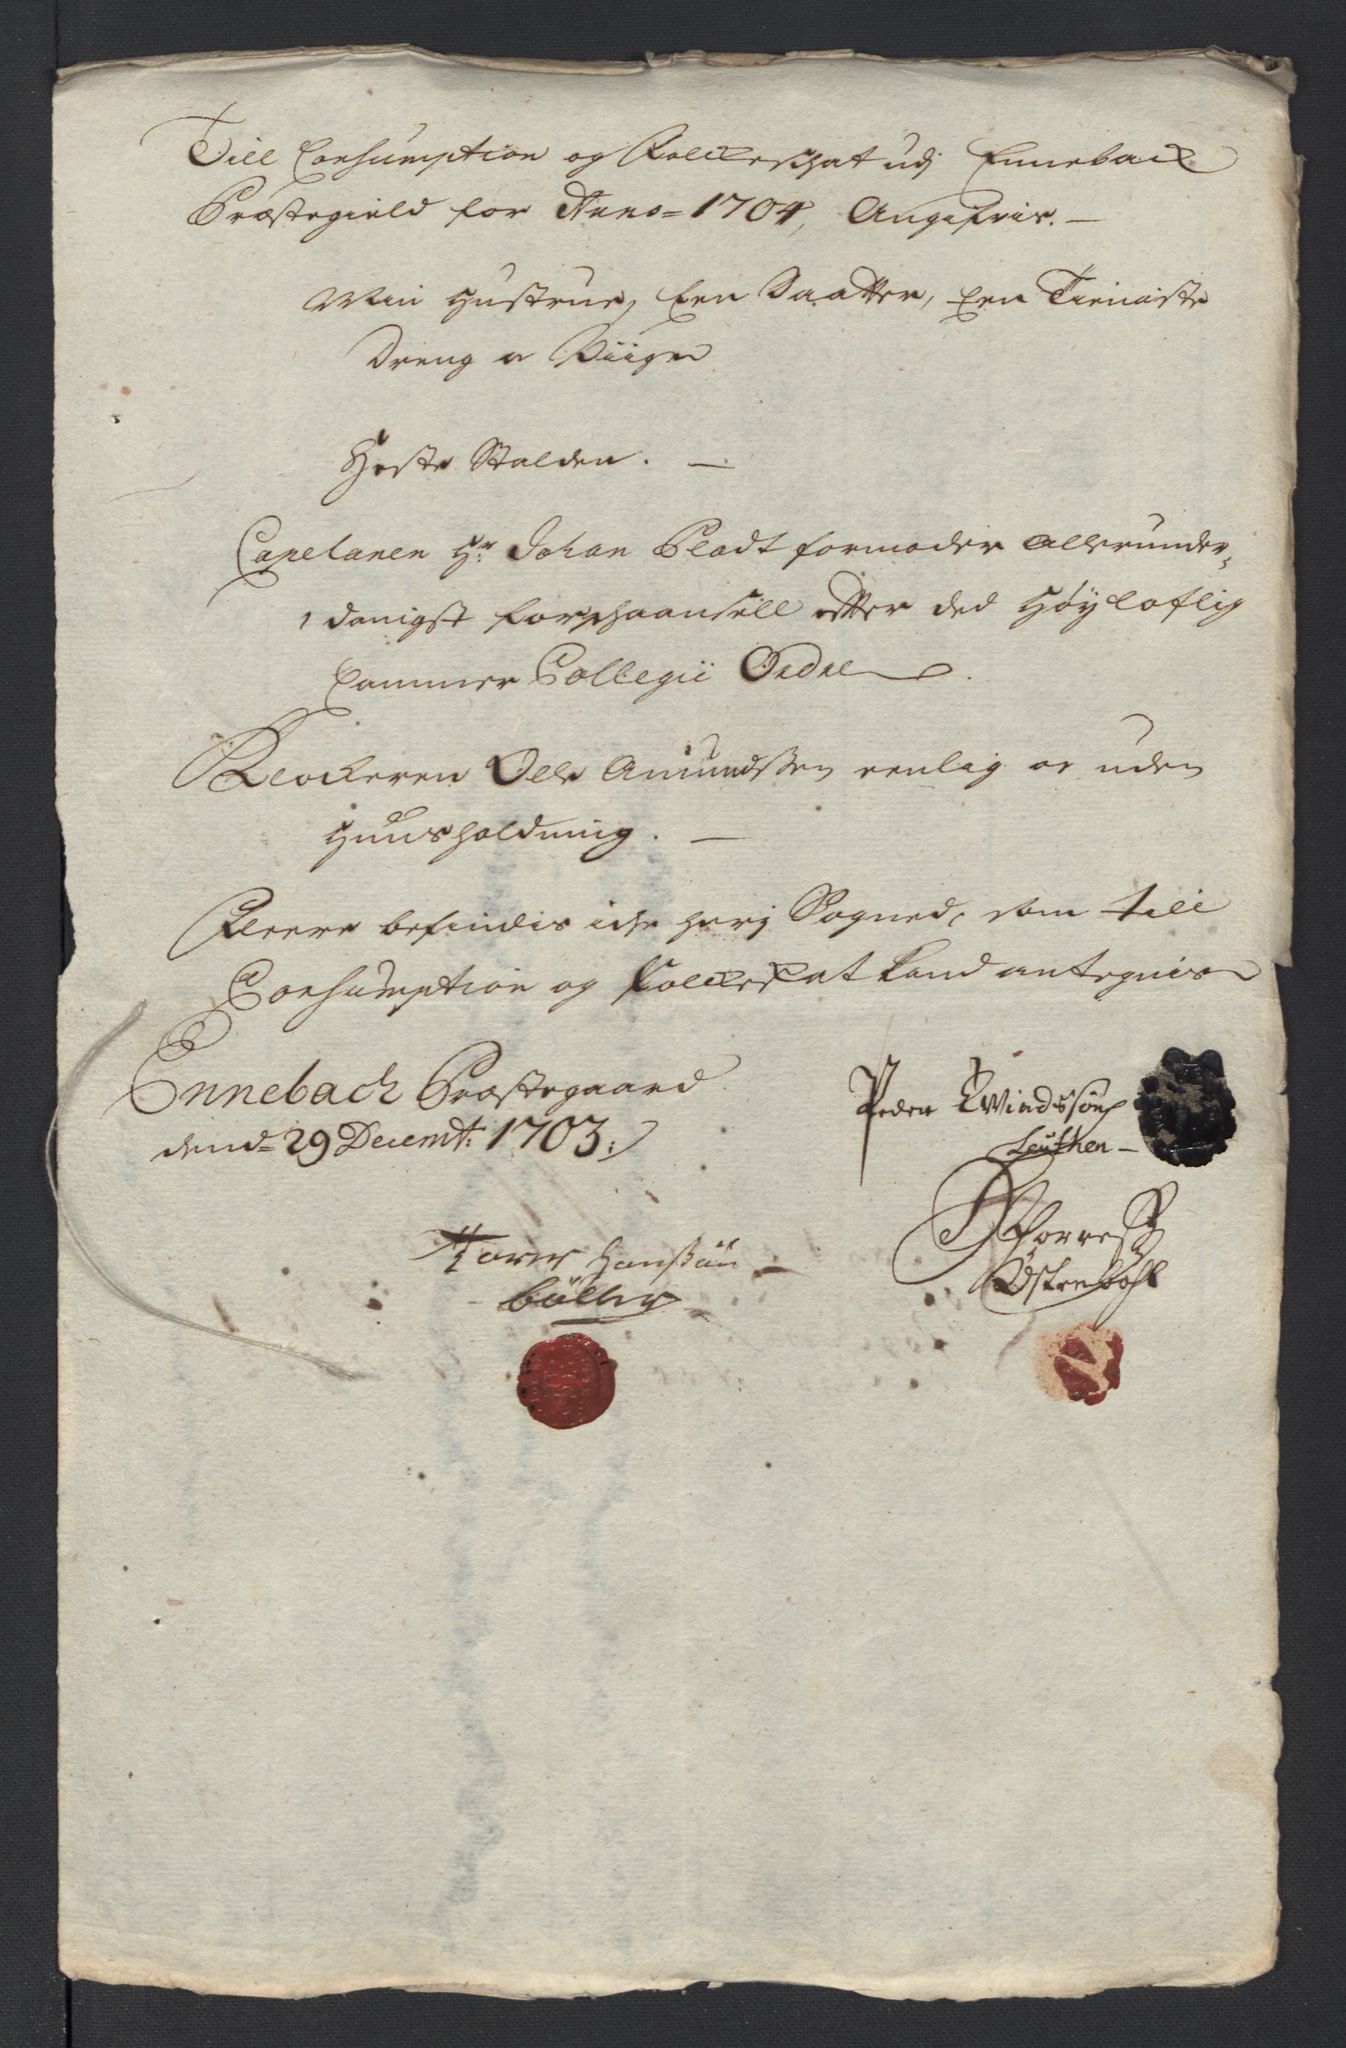 Till Consumption og Folckeschat udj Enneback
Præstegield for Anno = 1704, Angifvis. —
Min Hustrue, Een Daatter, Een Tienniste
Dreng oc Piige
Heste Stalden. —
Capelanen Hr. Johan Pladt formoder Allerunder-
danigst forschaansell effter ded Høyloflig
Cammer Collegii Sedel
Klockeren Olle Amundssen eenlig oc uden
Huusholdning. —
Fleere befindis iche herj Sogned, som till
Consumption og Folckeskat kand antegnis
Ennebach Præstegaard
dend 29 Decemt: 1703:
Peder Ewindssøn
Leuthen —
Torer Hanssøn
Bølbye
Østenbøhl